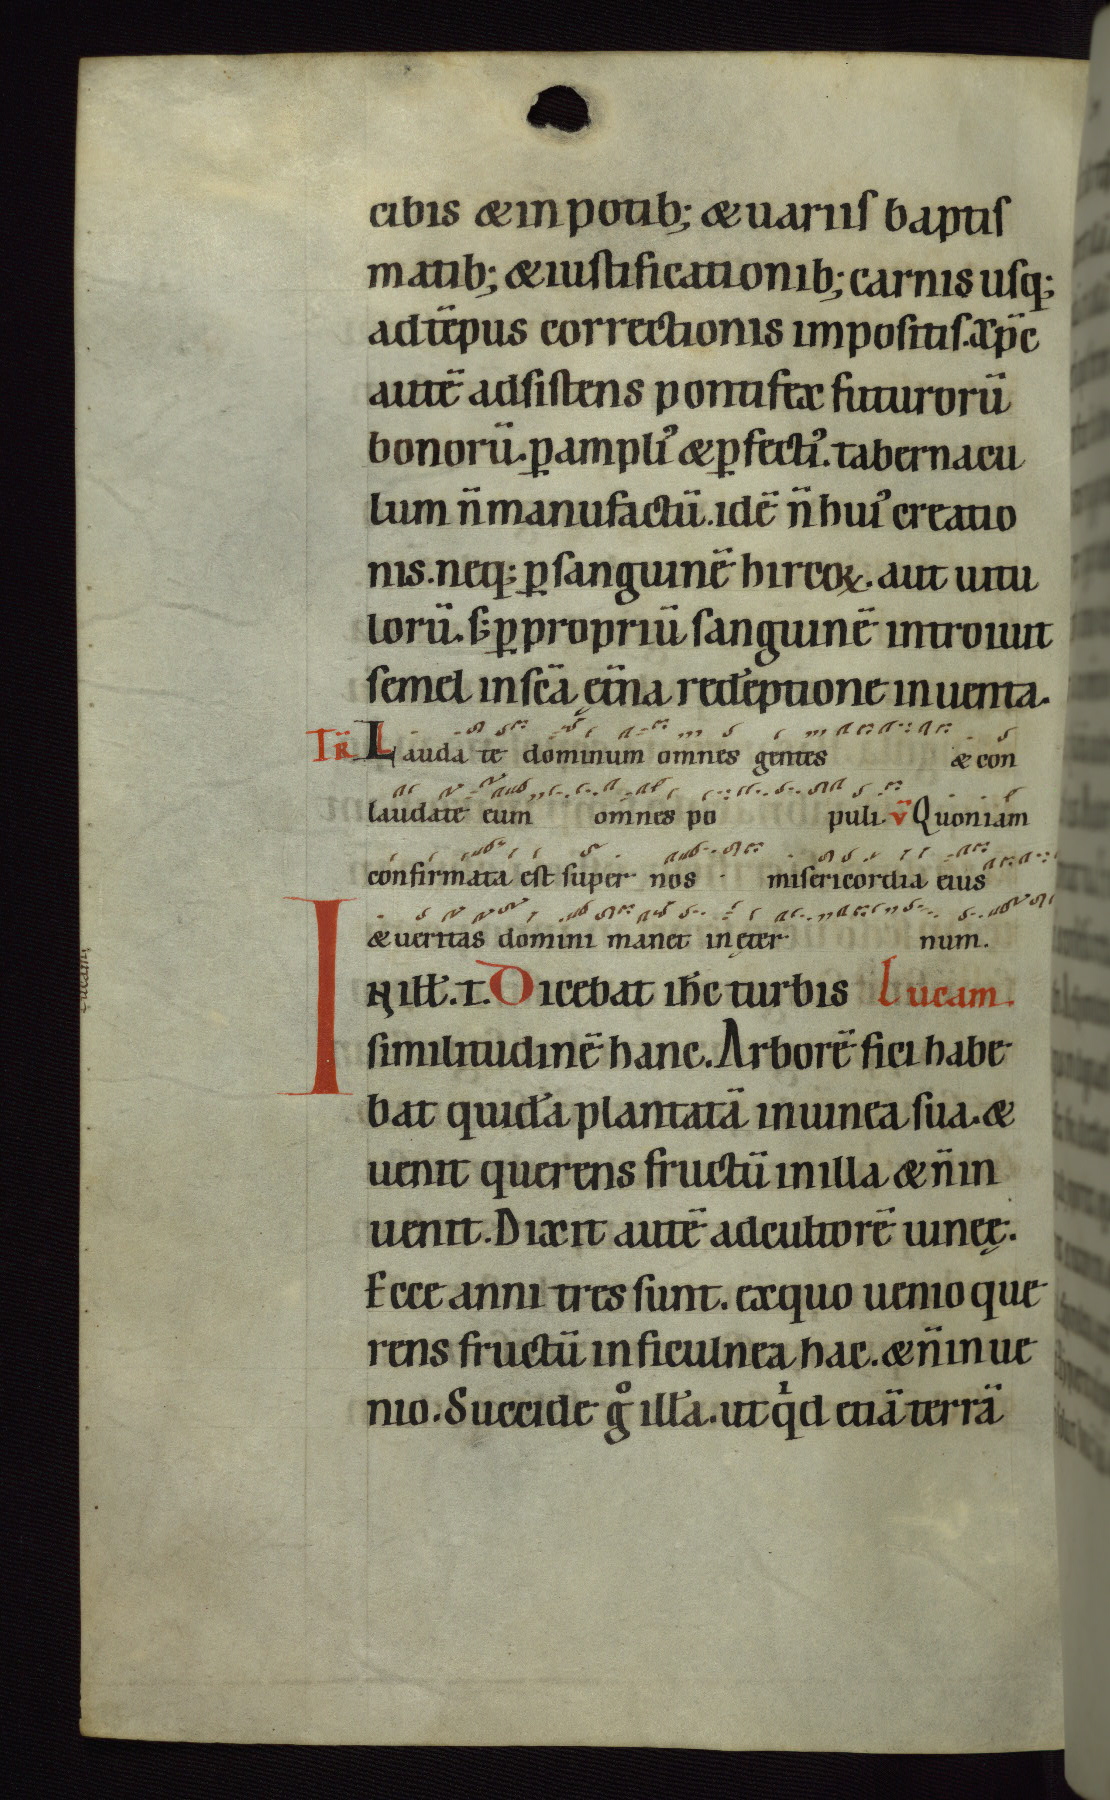 cibis & in potib; & uariis baptis
matib; & iustificationib; carnis usq;
ad tēpus correctionis impositis. xp̄c
autē adsistens pontifex futurorū
bonorū. ꝑ ampli᾿ & ꝑfecti᾿. tabernacu
lum n̄ manufactū. idē n̄ hui᾿ creatio
nis. neq; ꝑ sanguinē hircoꝝ. aut uitu
lorū. s; ꝑ propriū sanguinē introiuit
semel in sc̄a ęt̄na redēptione inuenta.
TR̄ Laudate dominum omnes gentes & con
laudate eum omnes po puli. v̄ Quoniam
confirmata est super nos misericordia eius
& ueritas domini manet in ęter num.
IN ILL̄. T. Dicebat ih̄c turbis Lucam.
similitudinē hanc. Arborē fici habe
bat quidā plantatā in uinea sua. &
uenit querens fructū in illa & n̄ in
uenit. Dixit autē ad cultorē uineę.
Ecce anni tres sunt. ex quo uenio que
rens fructū in ficulnea hac. & n̄ inue
nio. Succide gͦ illā. ut qͥd etiā terrā